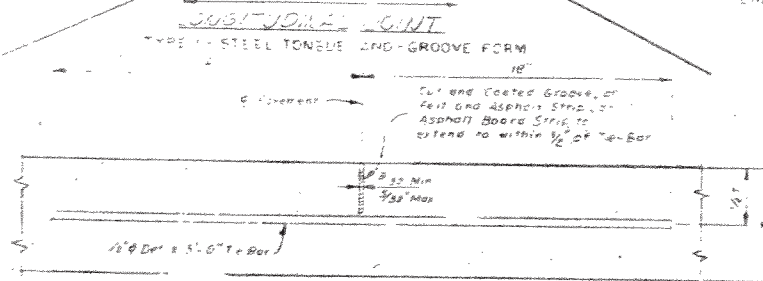 LONGITUDINAL JOINT
TYPE 1 - STEEL TONGUE AND-GROOVE FORM
18"
℄ Pavement
Cut and Coated Groove, or
Felt and Asphalt Strip, or
Asphalt Board Strip to
extend to within ½" of Tie-Bar
3/32 Min
5/32" Max
½ T
½"φ Def x 3'-0" Tie Bar